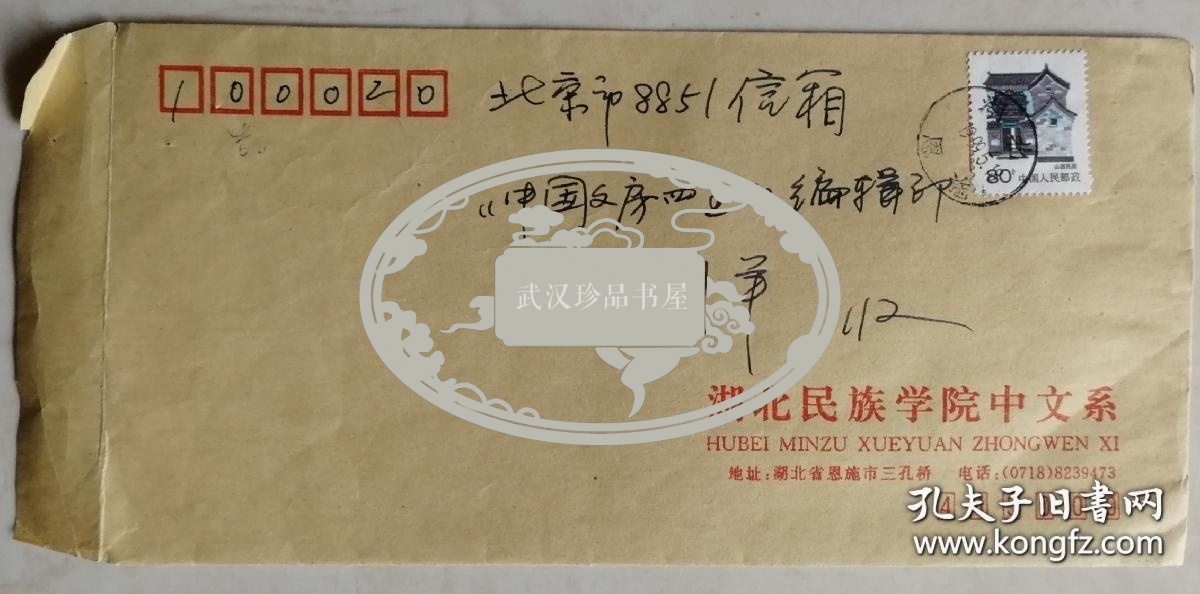 100020
北京市8851信箱
《中国文房四 编辑部
收
山西民居
80分 中国人民邮政
武汉珍品书屋
湖北民族学院中文系
HUBEI MINZU XUEYUAN ZHONGWEN XI
地址:湖北省恩施市三孔桥 电话:(0718)8239473
孔夫子旧书网
www.kongfz.com